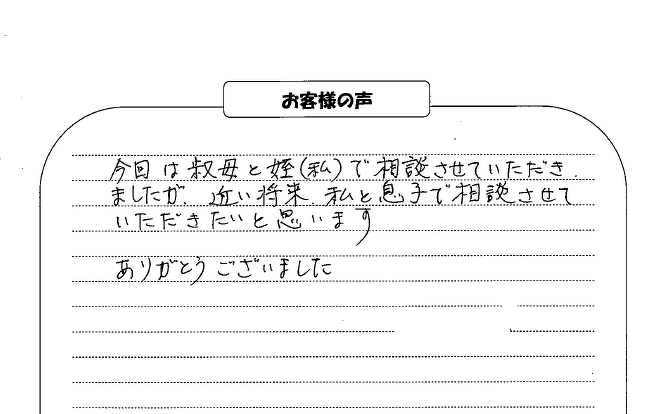 お客様の声
今回は叔母と姪(私)で相談させていただき
ましたが、近い将来、私と息子で相談させて
いただきたいと思います
ありがとうございました